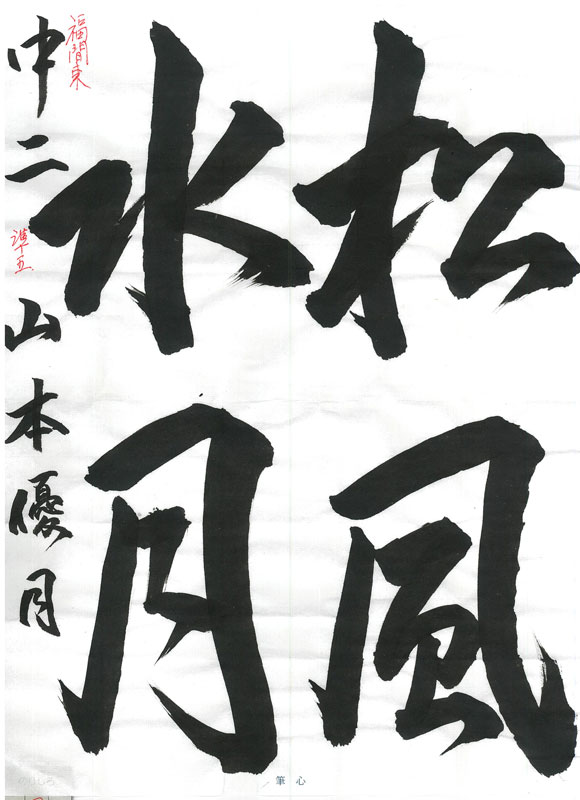 松風
水月
福間東
中二 準五 山本優月
筆心